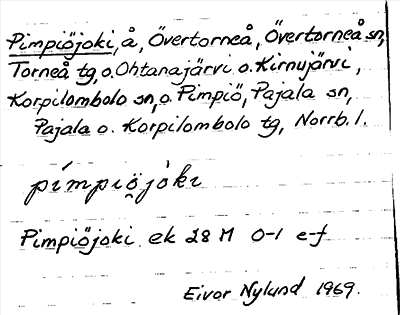 Pimpiöjoki, å, Övertorneå, Övertorneå sn,
Torneå tg, o. Ohtanajärvi o. Kirnujärvi,
Korpilombolo sn, o. Pimpiö, Pajala sn,
Pajala o. Korpilombolo tg, Norrb. l.
pímpiö̯jòki
Pimpiöjoki ek 28 M 0-1 e-f
Eivor Nylund 1969.